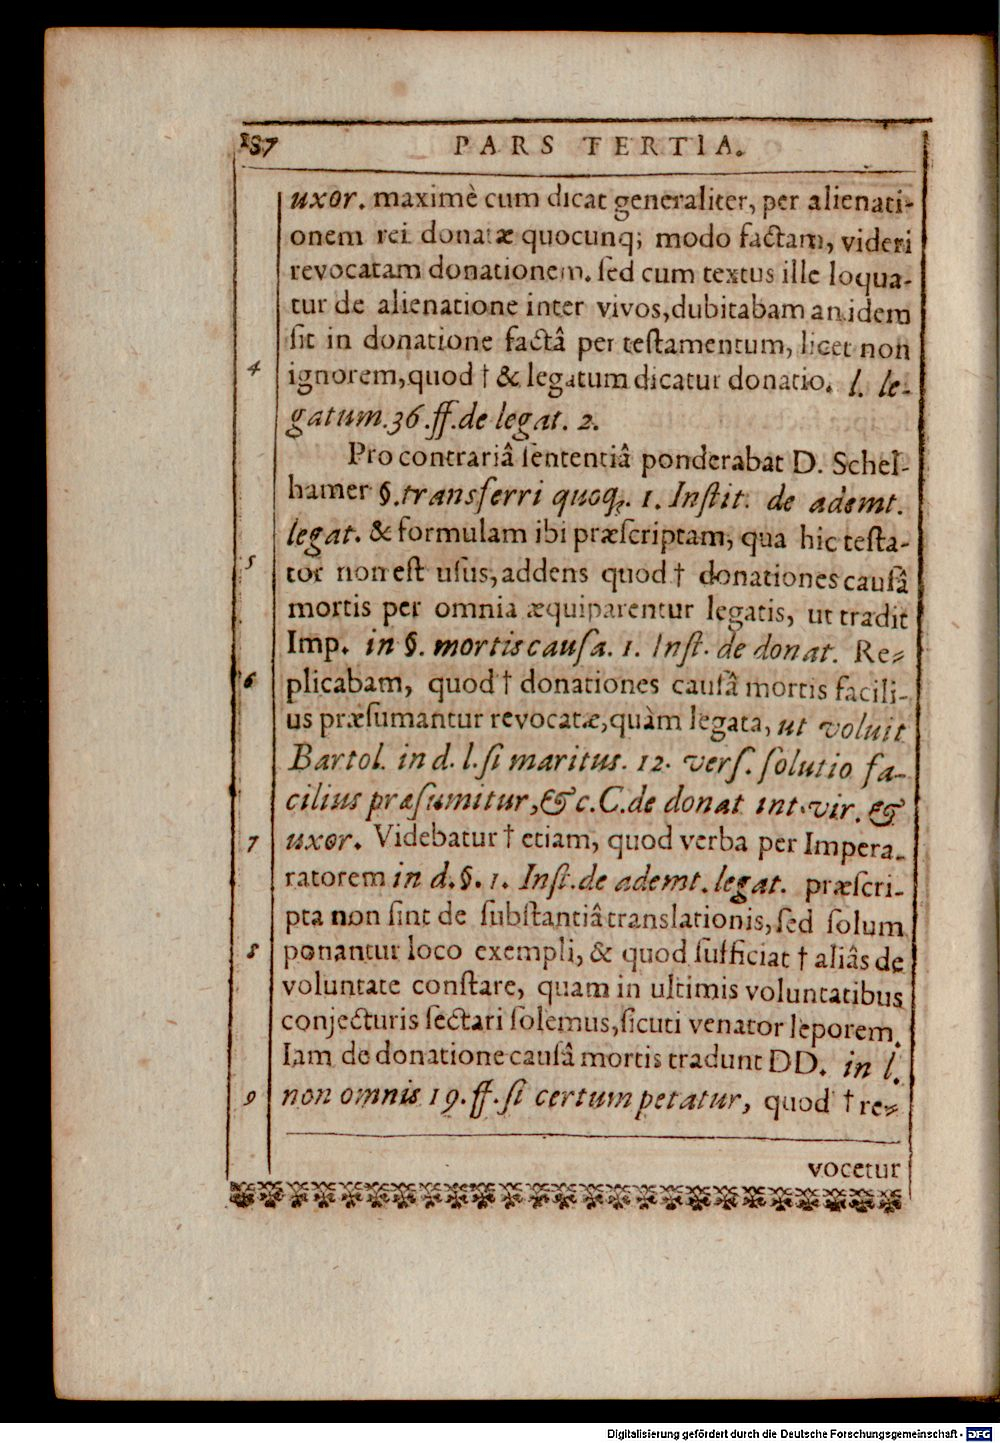 187 PARS TERTIA.
uxor. maximè cum dicat generaliter, per alienati-
onem rei donatæ quocunq; modo factam, videri
revocatam donationem. sed cum textus ille loqua-
tur de alienatione inter vivos, dubitabam an idem
sit in donatione factâ per testamentum, licet non
4 ignorem, quod † & legatum dicatur donatio. l. le-
gatum. 36. ff. de legat. 2.
Pro contrariâ sententiâ ponderabat D. Schel-
hamer §. transferri quoq;. 1. Instit. de ademt.
legat. & formulam ibi præscriptam, qua hic testa-
5 tor non est usus, addens quod † donationes causâ
mortis per omnia æquiparentur legatis, ut tradit
Imp. in §. mortis causa. 1. Inst. de donat. Re-
6 plicabam, quod † donationes causâ mortis facili-
us præsumantur revocatæ, quàm legata, ut voluit
Bartol. in d. l. si maritus. 12. vers. solutio fa-
cilius præsumitur, &c. C. de donat int. vir. &
7 uxor. Videbatur † etiam, quod verba per Impera-
ratorem in d. §. 1. Inst. de ademt. legat. præscri-
pta non sint de substantiâ translationis, sed solum
8 ponantur loco exempli, & quod sufficiat † aliâs de
voluntate constare, quam in ultimis voluntatibus
conjecturis sectari solemus, sicuti venator leporem.
Iam de donatione causâ mortis tradunt DD. in l.
9 non omnis 19. ff. si certum petatur, quod † re-
vocetur
Digitalisierung gefördert durch die Deutsche Forschungsgemeinschaft - DFG